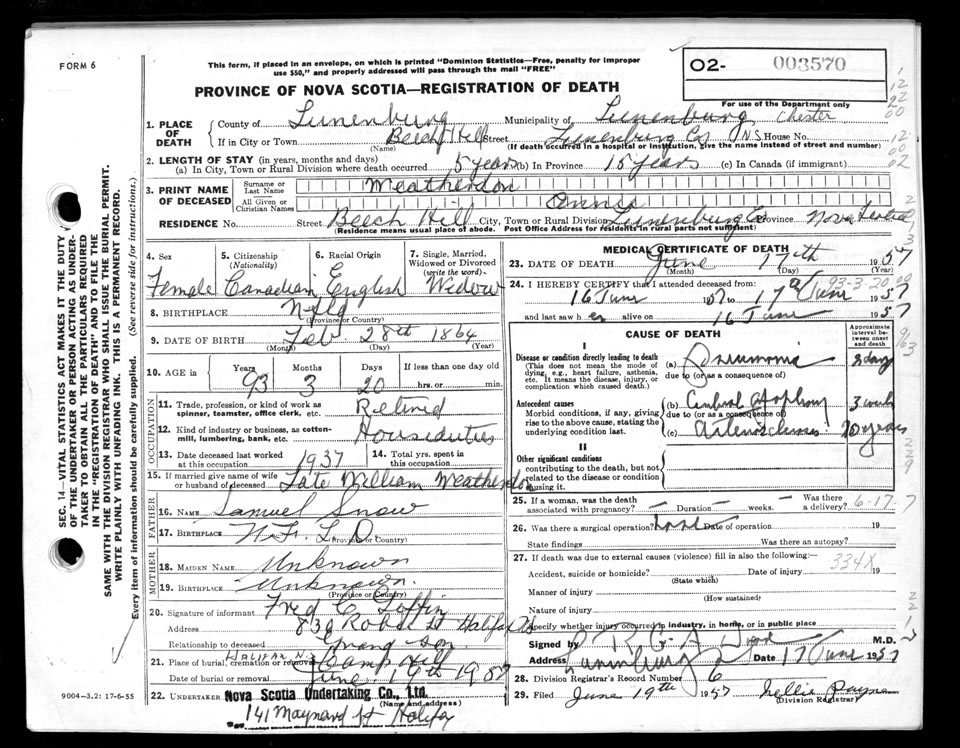 FORM 6
This form, if placed in an envelope, on which is printed "Dominion Statistics—Free, penalty for improper
use $50," and properly addressed will pass through the mail "FREE"
O2- 003570
For use of the Department only
PROVINCE OF NOVA SCOTIA—REGISTRATION OF DEATH
1. PLACE OF DEATH County of Lunenburg Municipality of Lunenburg, Chester
If in City or Town Beech Hill Street Lunenburg Co. N.S. House No.
(Name) (If death occurred in a hospital or institution, give the name instead of street and number)
2. LENGTH OF STAY (in years, months and days)
(a) In City, Town or Rural Division where death occurred 5 years (b) In Province 15 years (c) In Canada (if immigrant)
3. PRINT NAME OF DECEASED Surname or Last Name Weatherdon
All Given or Christian Names Annie
RESIDENCE No. Street Beech Hill City, Town or Rural Division Lunenburg Co Province Nova Scotia
(Residence means usual place of abode. Post Office Address for residents in rural parts not sufficient)
SEC. 14—VITAL STATISTICS ACT MAKES IT THE DUTY
OF THE UNDERTAKER OR PERSON ACTING AS UNDER-
TAKER TO OBTAIN ALL THE PARTICULARS REQUIRED
IN THE "REGISTRATION OF DEATH" AND TO FILE THE
SAME WITH THE DIVISION REGISTRAR WHO SHALL ISSUE THE BURIAL PERMIT.
WRITE PLAINLY WITH UNFADING INK. THIS IS A PERMANENT RECORD.
Every item of information should be carefully supplied. (See reverse side for instructions.)
4. Sex 5. Citizenship (Nationality) 6. Racial Origin 7. Single, Married, Widowed or Divorced (write the word)
Female Canadian English Widow
8. BIRTHPLACE Nfld
(Province or Country)
9. DATE OF BIRTH Feb. 28th 1864
(Month) (Day) (Year)
10. AGE in Years Months Days If less than one day old
93 3 20 hrs. or min.
OCCUPATION
11. Trade, profession, or kind of work as spinner, teamster, office clerk, etc. Retired
12. Kind of industry or business, as cotton-mill, lumbering, bank, etc. Houseduties
13. Date deceased last worked at this occupation 1937 14. Total yrs. spent in this occupation
15. If married give name of wife or husband of deceased Late William Weatherdon
FATHER
16. NAME Samuel Snow
17. BIRTHPLACE N.F.L.D
(Province or Country)
MOTHER
18. MAIDEN NAME Unknown
19. BIRTHPLACE Unknown.
(Province or Country)
20. Signature of informant Fred C. Toffin
Address 830 Robie St Halifax NS
Relationship to deceased Grand son
21. Place of burial, cremation or removal HALIFAX N.S. Camp Hill
Date of burial or removal June 19th 1957
22. UNDERTAKER Nova Scotia Undertaking Co., Ltd.
(Name and address)
141 Maynard St Halifax
9004-3,2: 17-6-55
MEDICAL CERTIFICATE OF DEATH
23. DATE OF DEATH June 17th 1957
(Month) (Day) (Year)
93-3-20
24. I HEREBY CERTIFY that I attended deceased from:
16 June 1957 to 17 June 1957
and last saw her alive on 16 June 1957
CAUSE OF DEATH
Approximate interval between onset and death
I
Disease or condition directly leading to death (a) Pneumonia 2 days
(This does not mean the mode of dying, e.g., heart failure, asthenia, etc. It means the disease, injury, or complication which caused death.)
due to (or as a consequence of)
Antecedent causes (b) Cerebral Apoplexy 3 weeks
Morbid conditions, if any, giving rise to the above cause, stating the underlying condition last.
due to (or as a consequence of)
(c) Arteriosclerosis 10 years
II
Other significant conditions
contributing to the death, but not related to the disease or condition causing it.
25. If a woman, was the death associated with pregnancy? — Duration — weeks. Was there a delivery?
6-17-7
26. Was there a surgical operation? none Date of operation 19
State findings Was there an autopsy?
27. If death was due to external causes (violence) fill in also the following:—
334X
Accident, suicide or homicide? Date of injury 19
(State which)
Manner of injury
(How sustained)
Nature of injury
Specify whether injury occurred in industry, in home, or in public place
Signed by M.D.
Address Lunenburg Date 17 June 1957
28. Division Registrar's Record Number 6
29. Filed June 19th 1957 Nellie Payne
(Division Registrar)